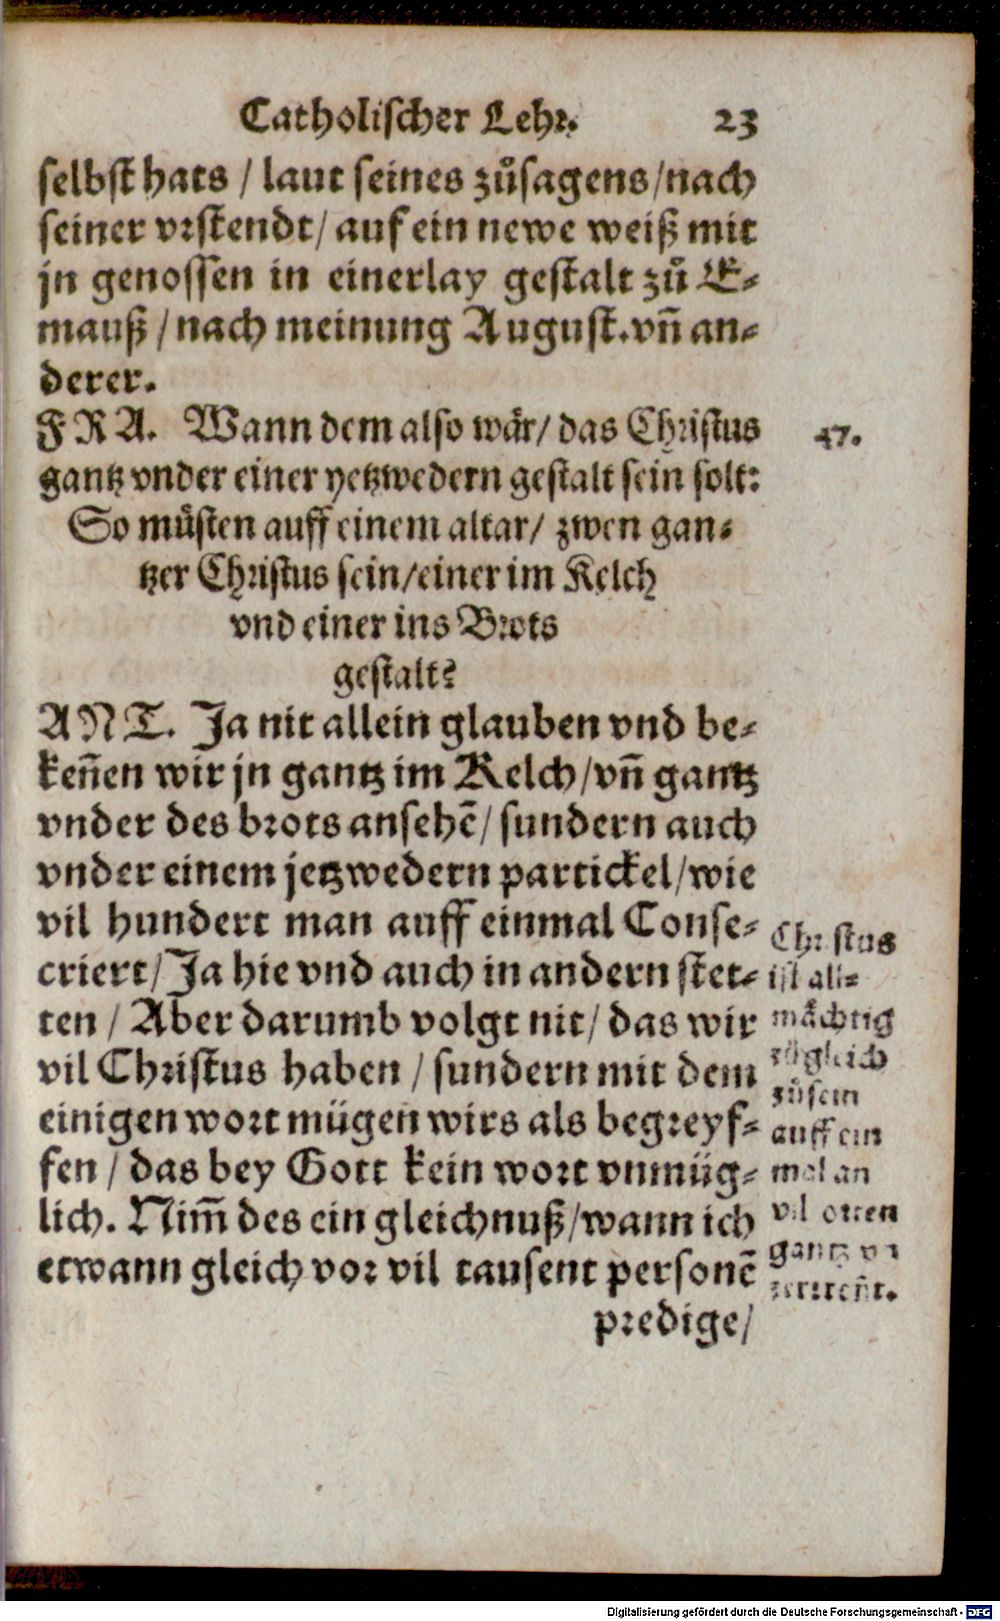 Catholischer Lehr. 23
selbst hats / laut seines zůsagens / nach
seiner vrstendt / auf ein newe weiß mit
jn genossen in einerlay gestalt zů E-
mauß / nach meinung August. vñ an-
derer.
FRA. Wann dem also wär / das Christus
gantz vnder einer yetzwedern gestalt sein solt:
So müsten auff einem altar / zwen gan-
tzer Christus sein / einer im Kelch
vnd einer ins Brots
gestalt?
47.
ANT. Ja nit allein glauben vnd be-
keñen wir jn gantz im Kelch / vñ gantz
vnder des brots ansehẽ / sundern auch
vnder einem jetzwedern partickel / wie
vil hundert man auff einmal Conse-
criert / Ja hie vnd auch in andern stet-
ten / Aber darumb volgt nit / das wir
vil Christus haben / sundern mit dem
einigen wort mügen wirs als begreyf-
fen / das bey Gott kein wort vnmüg-
lich. Nim̃ des ein gleichnuß / wann ich
etwann gleich vor vil tausent personẽ
predige /
Christus
ist all-
mächtig
zůgleich
zůsein
auff ein
mal an
vil orten
gantz vn
zertreñt.
Digitalisierung gefördert durch die Deutsche Forschungsgemeinschaft - DFG